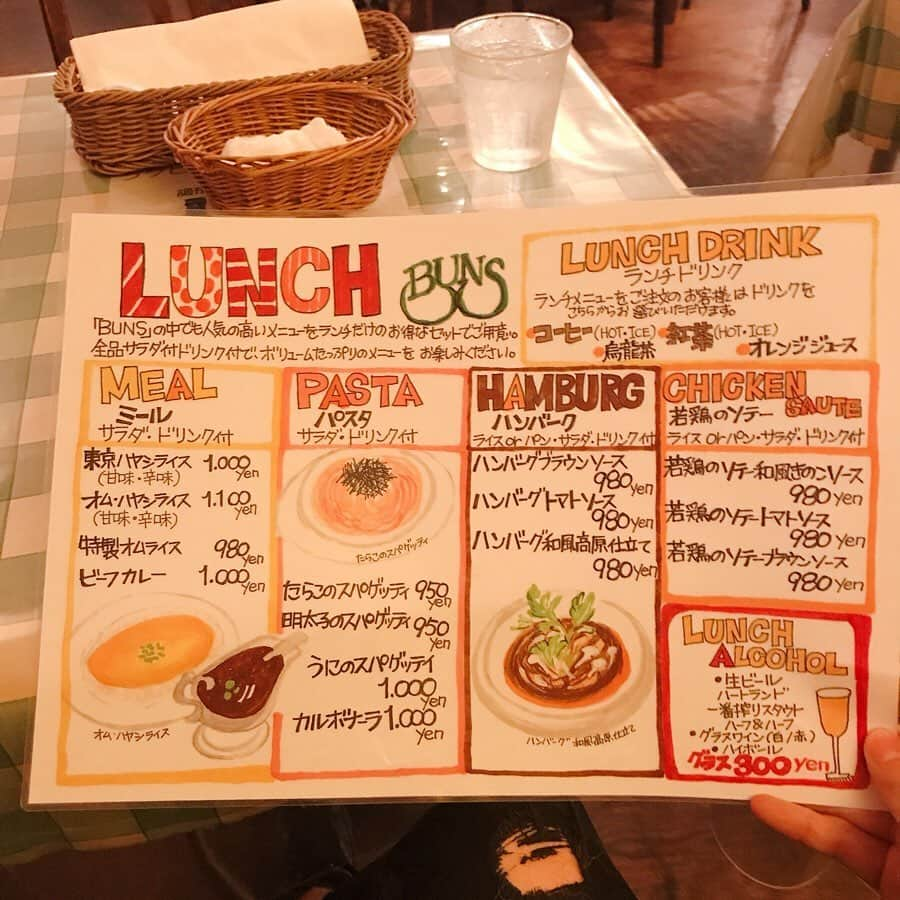 LUNCH
BUNS
「BUNS」の中でも人気の高いメニューをランチだけのお得なセットでご用意。
全品サラダ付ドリンク付で、ボリュームたっぷりのメニューをお楽しみください。
LUNCH DRINK
ランチドリンク
ランチメニューをご注文のお客様はドリンクを
こちらからお選びいただけます。
コーヒー(HOT・ICE) 紅茶(HOT・ICE)
烏龍茶 オレンジジュース
MEAL
ミール
サラダ・ドリンク付
東京ハヤシライス 1.000 yen
(甘味・辛味)
オム・ハヤシライス 1.100 yen
(甘味・辛味)
特製オムライス 980 yen
ビーフカレー 1.000 yen
オム・ハヤシライス
PASTA
パスタ
サラダ・ドリンク付
たらこのスパゲッティ
たらこのスパゲッティ 950 yen
明太子のスパゲッティ 950 yen
うにのスパゲッティ
1.000 yen
カルボナーラ 1.000 yen
HAMBURG
ハンバーク
ライス or パン・サラダ・ドリンク付
ハンバーグブラウンソース
980 yen
ハンバーグトマトソース
980 yen
ハンバーグ和風高原仕立て
980 yen
ハンバーグ和風高原仕立て
CHICKEN
SAUTE
若鶏のソテー
ライス or パン・サラダ・ドリンク付
若鶏のソテー和風きのこソース
980 yen
若鶏のソテートマトソース
980 yen
若鶏のソテーブラウンソース
980 yen
LUNCH
ALCOHOL
・生ビール
ハートランド
一番搾りスタウト
ハーフ&ハーフ
・グラスワイン(白/赤)
・ハイボール
グラス 300 yen